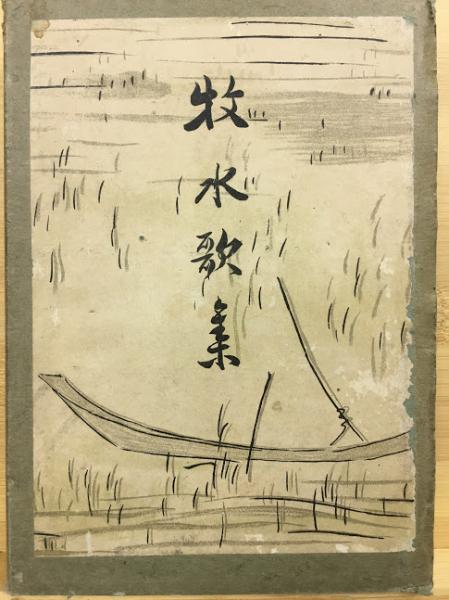 牧水歌集